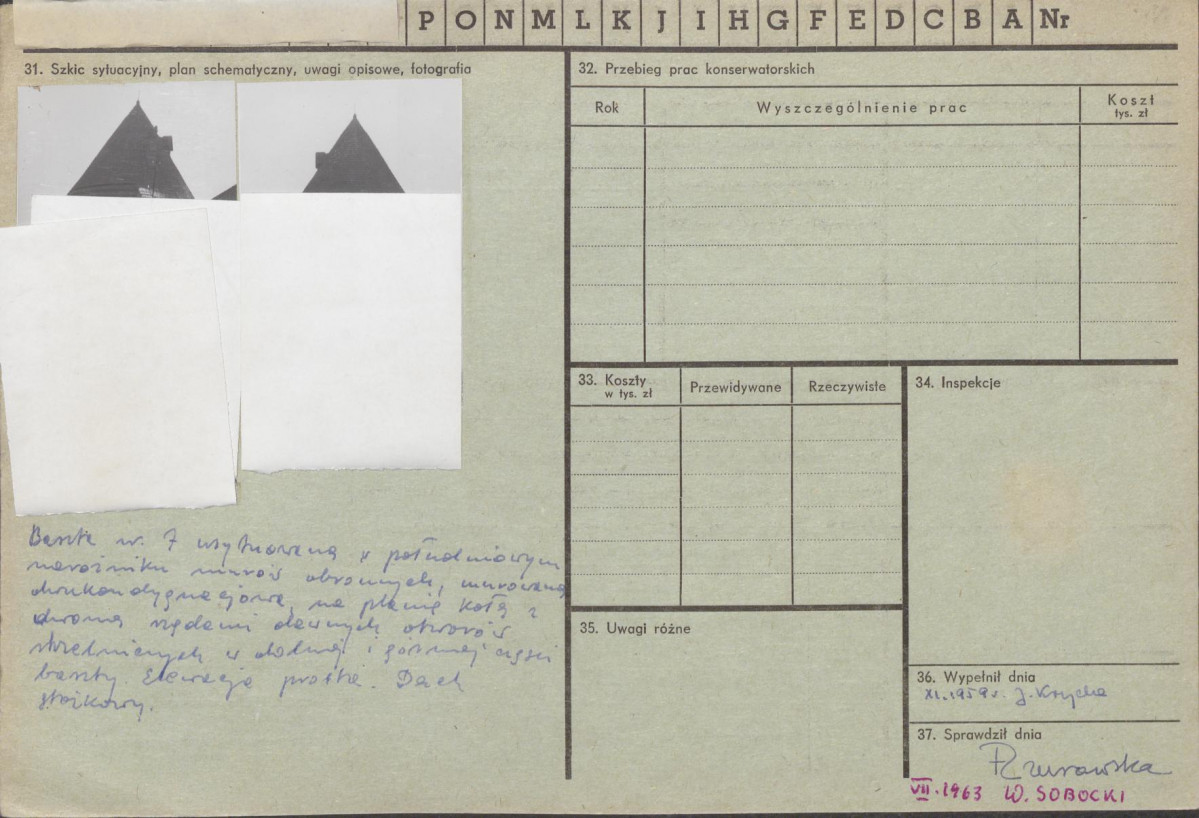 P O N M L K J I H G F E D C B A Nr
31. Szkic sytuacyjny, plan schematyczny, uwagi opisowe, fotografia
Baszta nr. 7 usytuowana w południowym
narożniku murów obronnych, murowana
dwukondygnacjowa, na planie koła z
dwoma rzędami dawnych otworów
strzelniczych w dolnej i górnej części
baszty. Elewacje proste. Dach
stożkowy.
32. Przebieg prac konserwatorskich
Rok Wyszczególnienie prac Koszt
tys. zł
33. Koszty
w tys. zł
Przewidywane Rzeczywiste
34. Inspekcje
35. Uwagi różne
36. Wypełnił dnia
XI.1959r. J. Krzycha
37. Sprawdził dnia
VII.1963 W. SOBOCKI